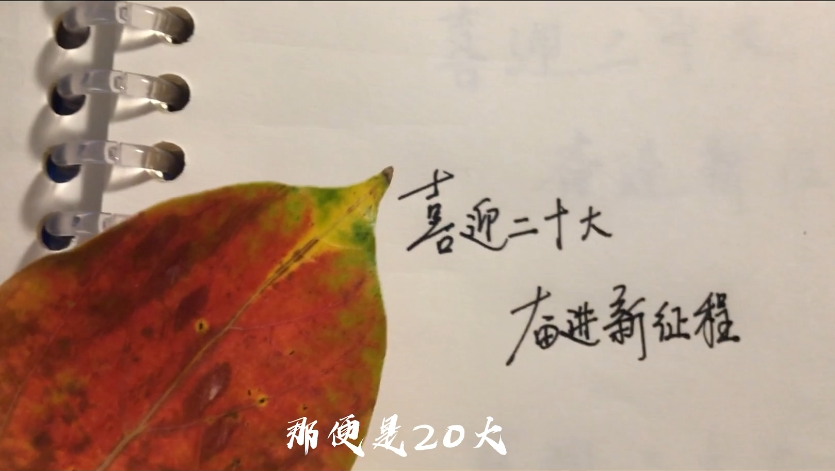 喜迎二十大
奋进新征程
那便是20大